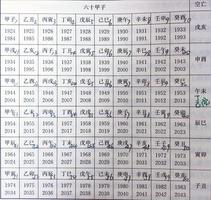 六十甲子 空亡
甲子 乙丑 丙寅 丁卯 戊辰 己巳 庚午 辛未 壬申 癸酉 戌亥
1924 1925 1926 1927 1928 1929 1930 1931 1932 1933
1984 1985 1986 1987 1988 1989 1990 1991 1992 1993
甲戌 乙亥 丙子 丁丑 戊寅 己卯 庚辰 辛巳 壬午 癸未 申酉
1934 1935 1936 1937 1938 1939 1940 1941 1942 1943
1994 1995 1996 1997 1998 1999 2000 2001 2002 2003
甲申 乙酉 丙戌 丁亥 戊子 己丑 庚寅 辛卯 壬辰 癸巳 午未
1944 1945 1946 1947 1948 1949 1950 1951 1952 1953
2004 2005 2006 2007 2008 2009 2010 2011 2012 2013
甲午 乙未 丙申 丁酉 戊戌 己亥 庚子 辛丑 壬寅 癸卯 辰巳
1954 1955 1956 1957 1958 1959 1960 1961 1962 1963
2014 2015 2016 2017 2018 2019 2020 2021 2022 2023
甲辰 乙巳 丙午 丁未 戊申 己酉 庚戌 辛亥 壬子 癸丑 寅卯
1964 1965 1966 1967 1968 1969 1970 1971 1972 1973
2024 2025 2026 2027 2028 2029 2030 2031 2032 2033
甲寅 乙卯 丙辰 丁巳 戊午 己未 庚申 辛酉 壬戌 癸亥 子丑
1974 1975 1976 1977 1978 1979 1980 1981 1982 1983
2034 2035 2036 2037 2038 2039 2040 2041 2042 2043